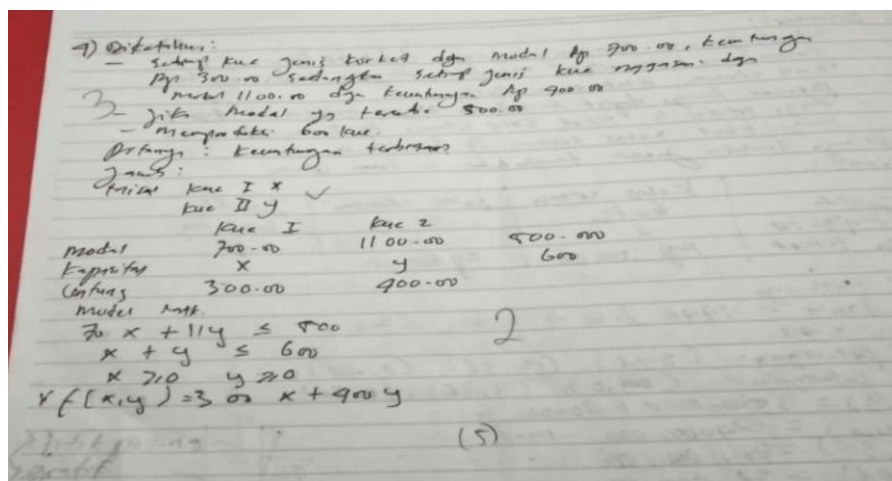 4) Diketahui:
- Setiap kue jenis dgn modal Rp 700.00, keuntungan
Rp 300.00 sedangkan setiap jenis kue dgn
modal 1100.00 dgn keuntungan Rp 400.00
3
- Jika modal yg 500.00
- Memproduksi 600 kue.
Ditanya: keuntungan terbesar?
Jawab:
Misal kue I x ✓
kue II y
kue I kue 2
modal 700.00 1100.00 500.000
Kapasitas x y 600
Untung 300.00 400.00
model
x + 11y ≤ 500
2
x + y ≤ 600
x ≥ 0 y ≥ 0
f(x,y) = 300 x + 400 y
(5)